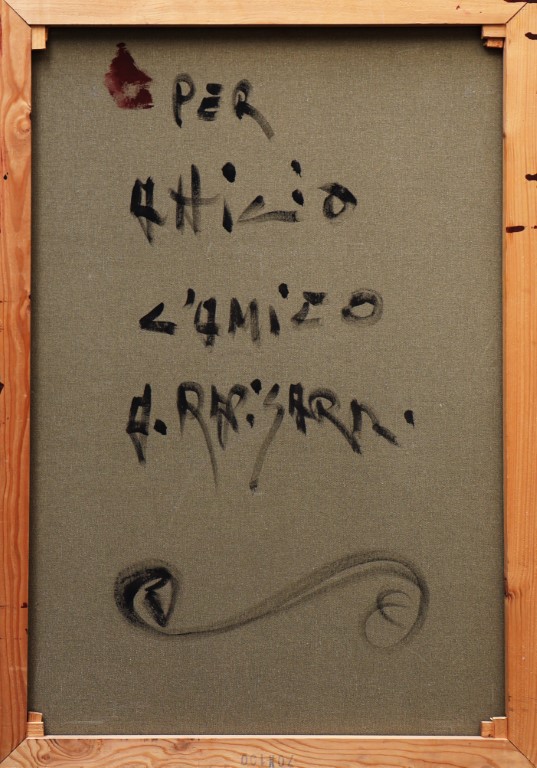 PER
ATTiLiO
L'AMiCO
A. RAPiSARDA.